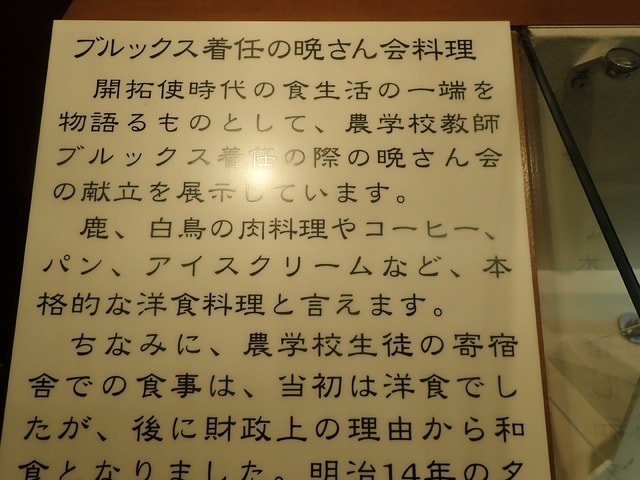 ブルックス着任の晩さん会料理
開拓使時代の食生活の一端を
物語るものとして、農学校教師
ブルックス着任の際の晩さん会
の献立を展示しています。
鹿、白鳥の肉料理やコーヒー、
パン、アイスクリームなど、本
格的な洋食料理と言えます。
ちなみに、農学校生徒の寄宿
舎での食事は、当初は洋食でし
たが、後に財政上の理由から和
食となりました。明治14年の夕